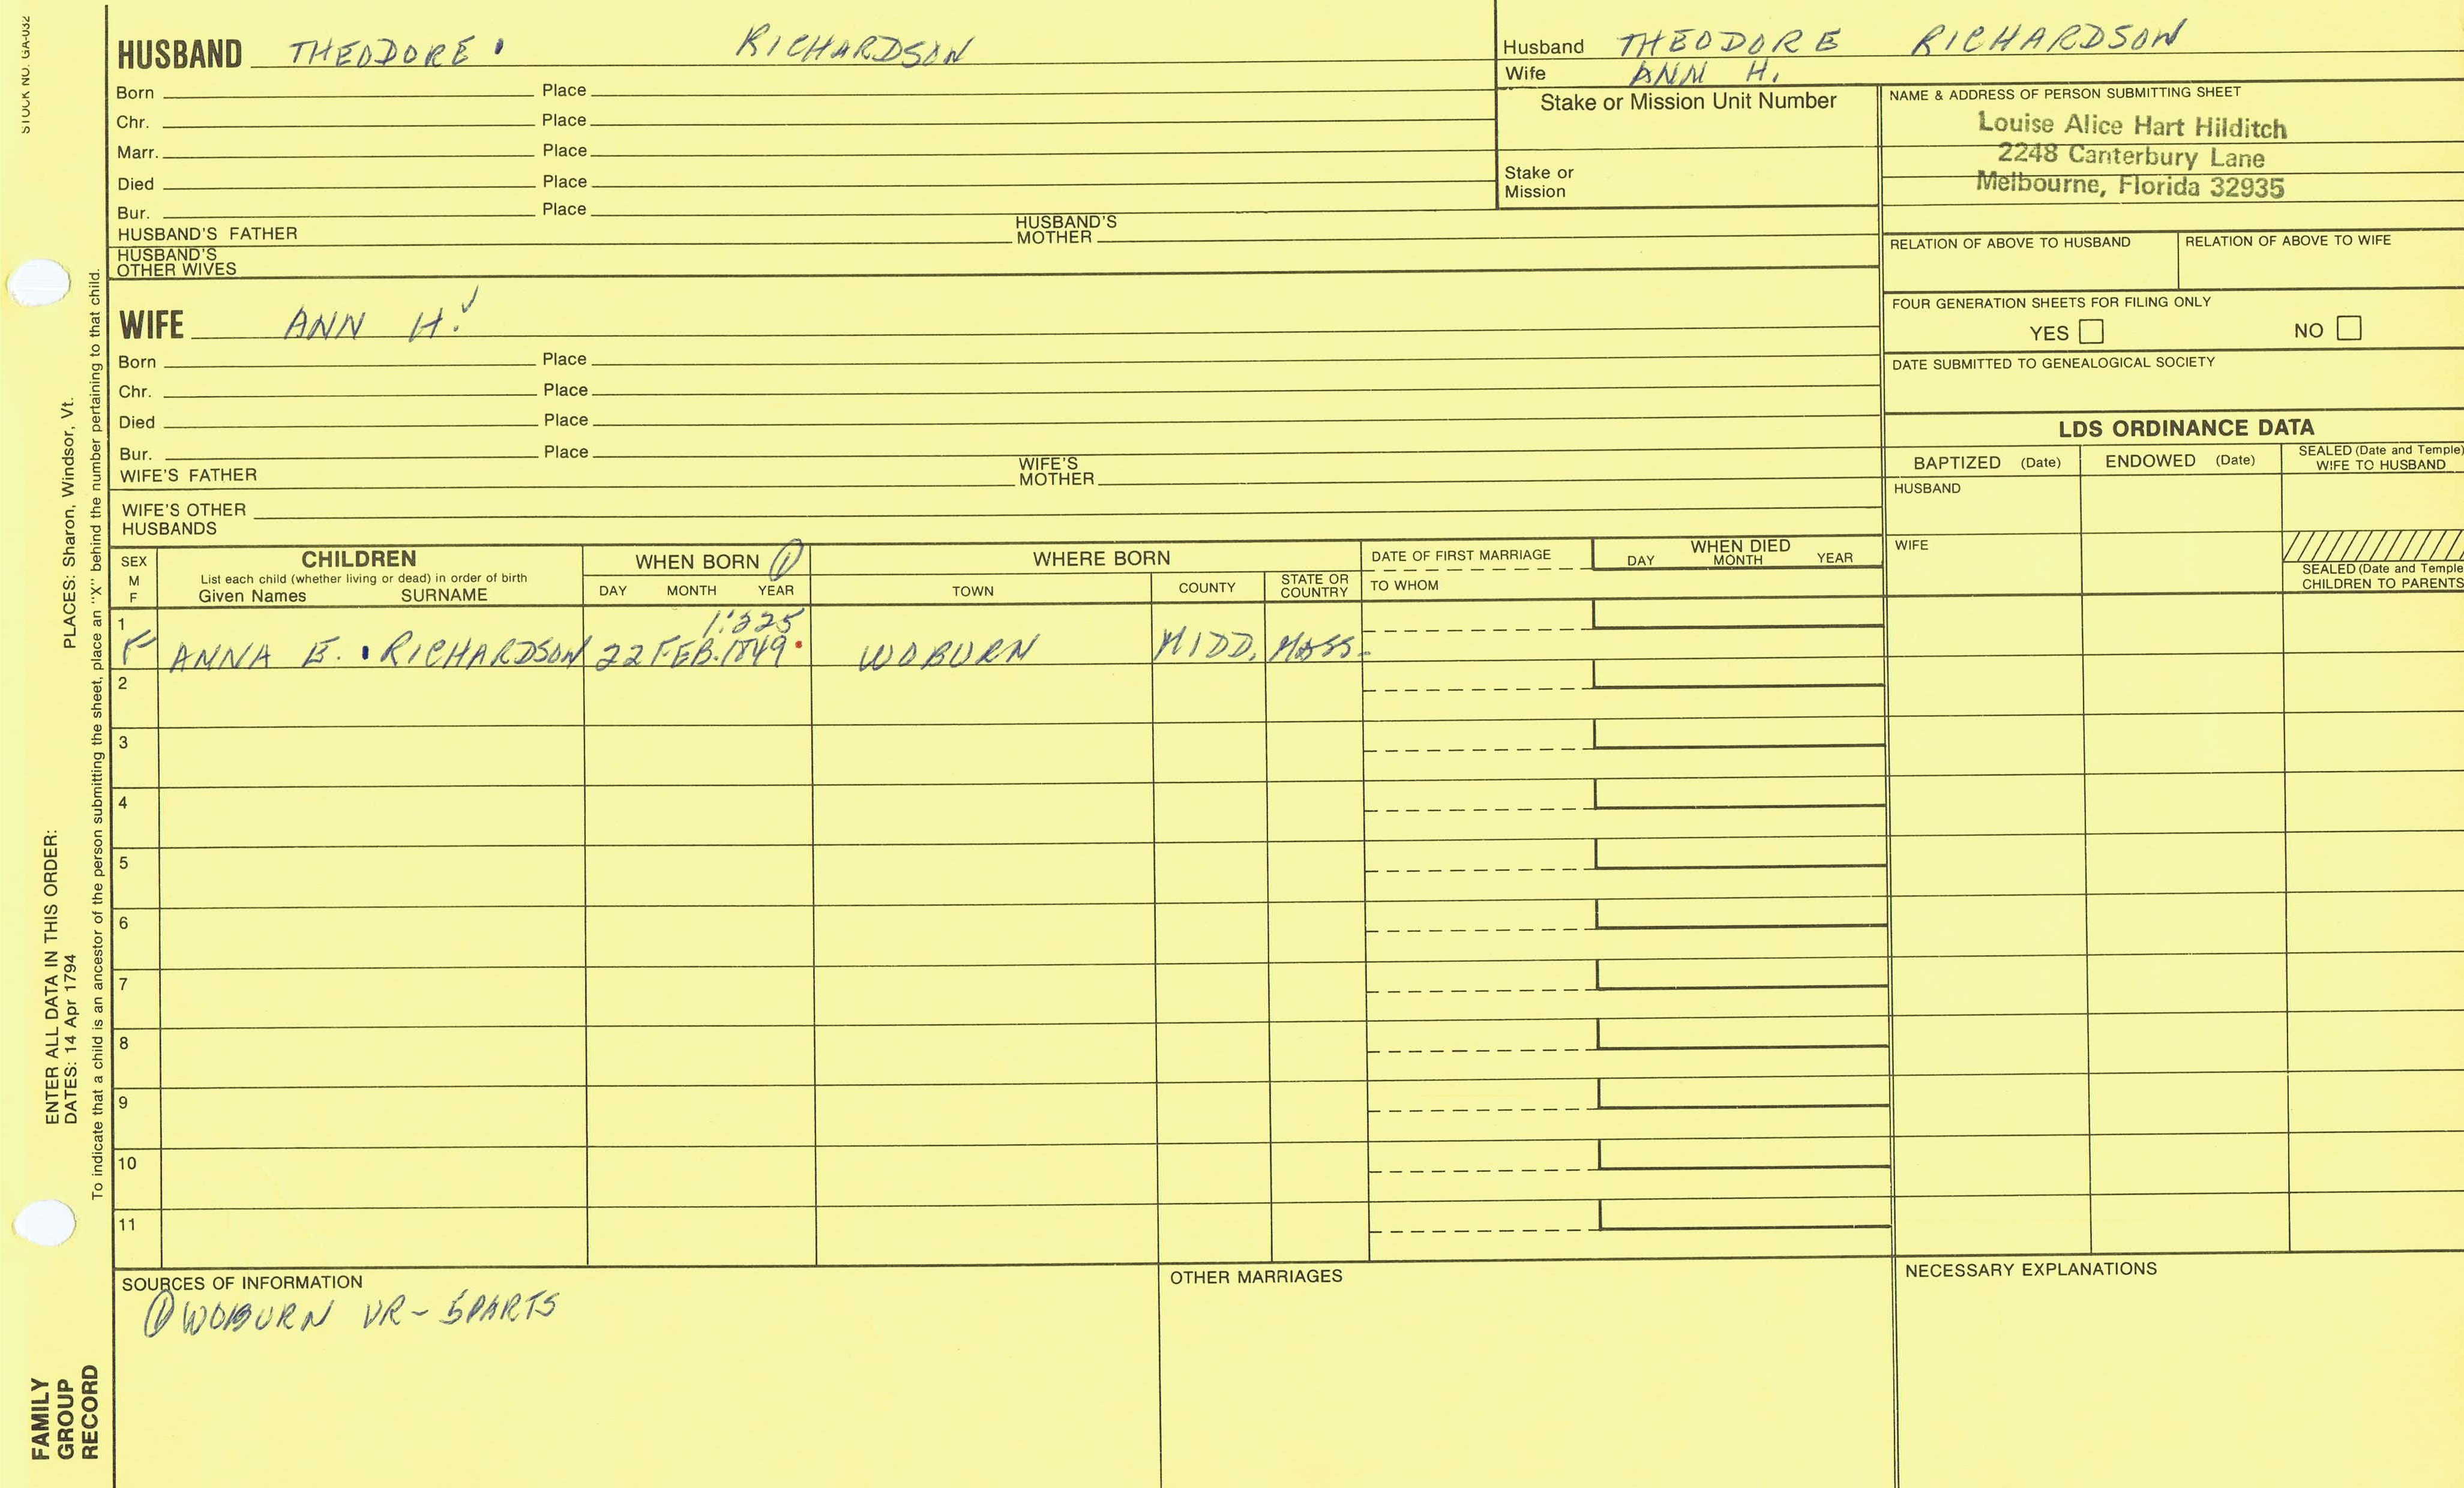 STOCK NO. GA-032
HUSBAND THEODORE RICHARDSON
Born Place
Chr. Place
Marr. Place
Died Place
Bur. Place
HUSBAND'S FATHER HUSBAND'S MOTHER
HUSBAND'S OTHER WIVES
Husband THEODORE RICHARDSON
Wife ANN H.
Stake or Mission Unit Number
Stake or Mission
NAME & ADDRESS OF PERSON SUBMITTING SHEET
Louise Alice Hart Hilditch
2248 Canterbury Lane
Melbourne, Florida 32935
RELATION OF ABOVE TO HUSBAND RELATION OF ABOVE TO WIFE
FOUR GENERATION SHEETS FOR FILING ONLY
YES NO
DATE SUBMITTED TO GENEALOGICAL SOCIETY
WIFE ANN H.
Born Place
Chr. Place
Died Place
Bur. Place
WIFE'S FATHER WIFE'S MOTHER
WIFE'S OTHER HUSBANDS
LDS ORDINANCE DATA
BAPTIZED (Date) ENDOWED (Date) SEALED (Date and Temple) WIFE TO HUSBAND
HUSBAND
WIFE
SEALED (Date and Temple
CHILDREN TO PARENTS
SEX M F
CHILDREN
List each child (whether living or dead) in order of birth
Given Names SURNAME
WHEN BORN ①
DAY MONTH YEAR
WHERE BORN
TOWN COUNTY STATE OR COUNTRY
DATE OF FIRST MARRIAGE
TO WHOM
WHEN DIED
DAY MONTH YEAR
1:325
1 F ANNA E. RICHARDSON 22 FEB. 1849 WOBURN MIDD. MASS.
2
3
4
5
6
7
8
9
10
11
SOURCES OF INFORMATION
① WOBURN VR - 5 PARTS
OTHER MARRIAGES
NECESSARY EXPLANATIONS
ENTER ALL DATA IN THIS ORDER:
DATES: 14 Apr 1794 PLACES: Sharon, Windsor, Vt.
To indicate that a child is an ancestor of the person submitting the sheet, place an "X" behind the number pertaining to that child.
FAMILY
GROUP
RECORD